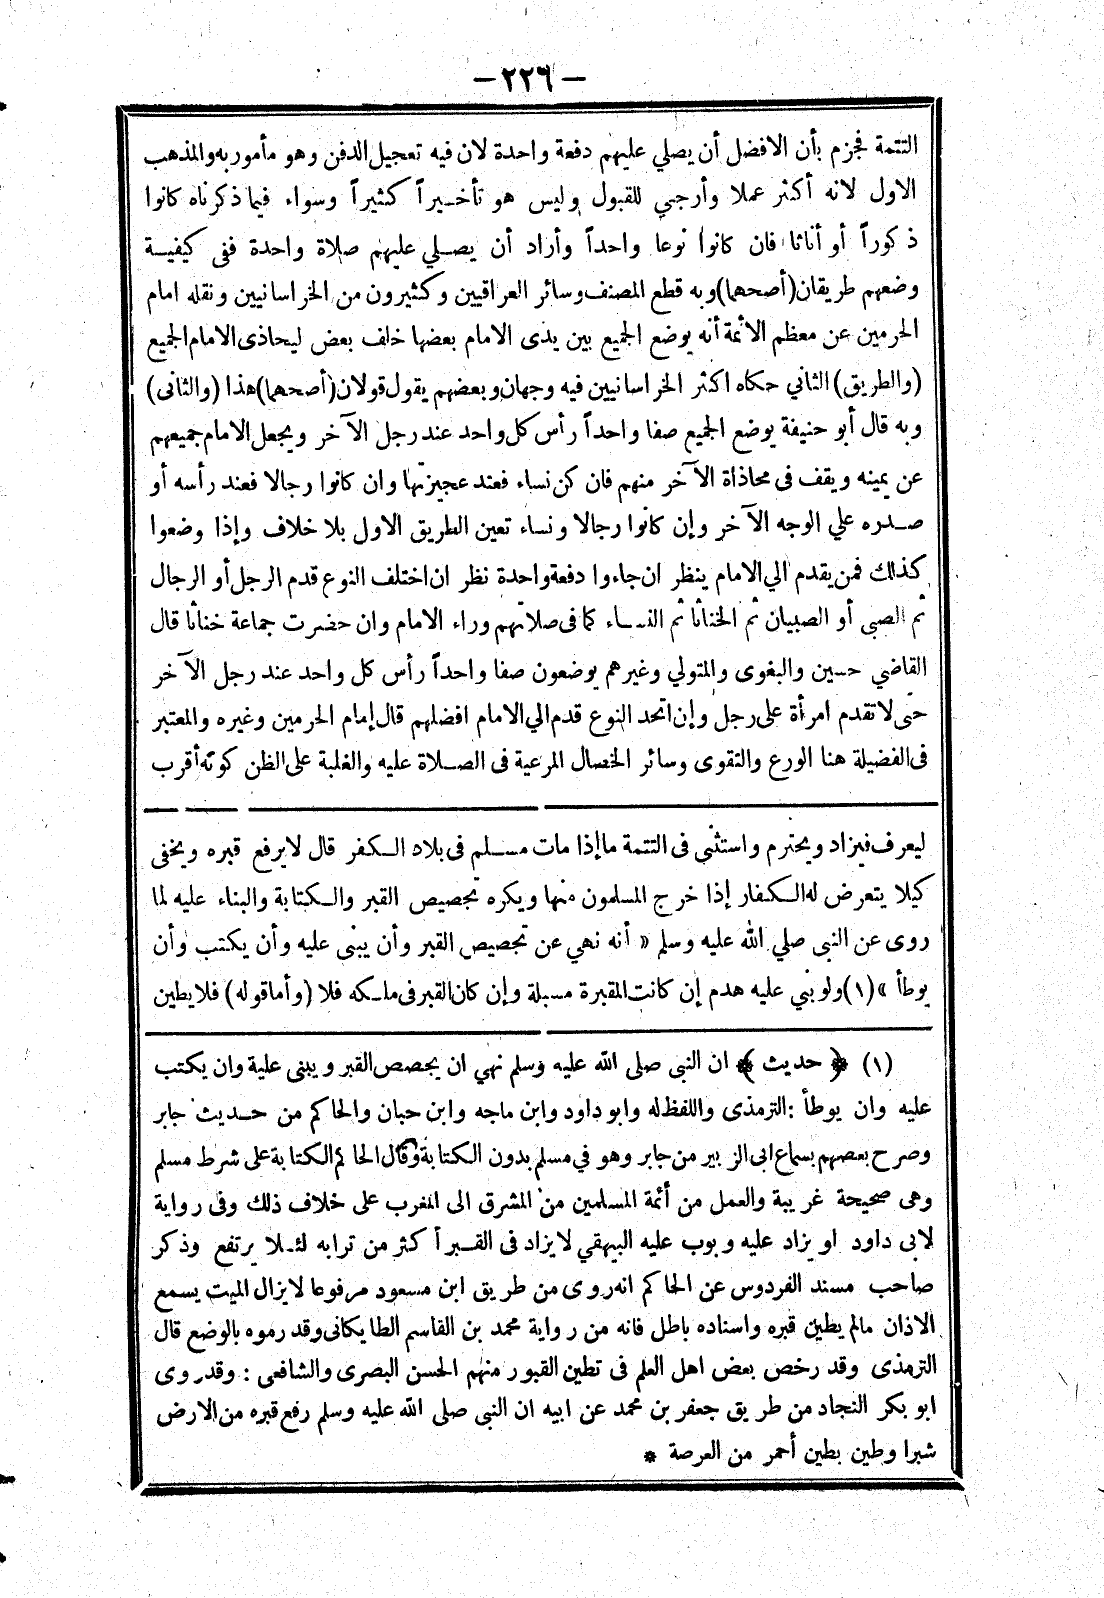 — ٢٢٦ —
التتمة فجزم بأن الافضل أن يصلي عليهم دفعة واحدة لان فيه تعجيل الدفن وهو مأمور به والمذهب
الاول لانه أكثر عملا وأرجي للقبول وليس هو تأخيراً كثيراً وسواء فيما ذكرناه كانوا
ذكوراً أو أناثا فان كانوا نوعا واحداً وأراد أن يصلي عليهم صلاة واحدة ففى كيفية
وضعهم طريقان (أصحهما) وبه قطع المصنف وسائر العراقيين وكثيرون من الخراسانيين ونقله امام
الحرمين عن معظم الائمة أنه يوضع الجميع بين يدى الامام بعضها خلف بعض ليحاذى الامام الجميع
(والطريق) الثاني حكاه اكثر الخراسانيين فيه وجهان وبعضهم يقول قولان (أصحهما) هذا (والثانى)
وبه قال أبو حنيفة يوضع الجميع صفا واحداً رأس كل واحد عند رجل الآخر ويجعل الامام جميعهم
عن يمينه ويقف فى محاذاة الآخر منهم فان كن نساء فعند عجيزتها وان كانوا رجالا فعند رأسه أو
صدره علي الوجه الآخر وإن كانوا رجالا ونساء تعين الطريق الاول بلا خلاف وإذا وضعوا
كذلك فمن يقدم الي الامام ينظر ان جاءوا دفعة واحدة نظر ان اختلف النوع قدم الرجل أو الرجال
ثم الصبى أو الصبيان ثم الخناثا ثم النساء كما فى صلاتهم وراء الامام وان حضرت جماعة خناثا قال
القاضي حسين والبغوى والمتولي وغيرهم يوضعون صفا واحداً رأس كل واحد عند رجل الآخر
حتى لا تقدم امرأة على رجل وإن اتحد النوع قدم الي الامام افضلهم قال إمام الحرمين وغيره والمعتبر
فى الفضيلة هنا الورع والتقوى وسائر الخصال المرعية فى الصلاة عليه والغلبة على الظن كونه أقرب
ليعرف فيزاد ويحترم واستثنى فى التتمة ما إذا مات مسلم فى بلاد الكفر قال لا يرفع قبره ويخفى
كيلا يتعرض له الكفار إذا خرج المسلمون منها ويكره تجصيص القبر والكتابة والبناء عليه لما
روى عن النبى صلي الله عليه وسلم « أنه نهي عن تجصيص القبر وأن يبنى عليه وأن يكتب وأن
يوطأ » (١) ولو بني عليه هدم إن كانت المقبرة مسبلة وإن كان القبر فى ملكه فلا (وأما قوله) فلا يطين
(١) ﴿ حديث ﴾ ان النبى صلى الله عليه وسلم نهي ان يجصص القبر ويبنى علية وان يكتب
عليه وان يوطأ : الترمذى واللفظ له وابو داود وابن ماجه وابن حبان والحاكم من حديث جابر
وصرح بعضهم بسماع ابى الزبير من جابر وهو في مسلم بدون الكتابة وقال الحاكم الكتابة على شرط مسلم
وهى صحيحة غريبة والعمل من أئمة المسلمين من المشرق الى المغرب على خلاف ذلك وفى رواية
لابى داود او يزاد عليه وبوب عليه البيهقي لا يزاد فى القبر أكثر من ترابه لئلا يرتفع وذكر
صاحب مسند الفردوس عن الحاكم انه روى من طريق ابن مسعود مرفوعا لا يزال الميت يسمع
الاذان مالم يطين قبره واسناده باطل فانه من رواية محمد بن القاسم الطايكانى وقد رموه بالوضع قال
الترمذى وقد رخص بعض اهل العلم فى تطين القبور منهم الحسن البصرى والشافعى : وقد روى
ابو بكر النجاد من طريق جعفر بن محمد عن ابيه ان النبى صلى الله عليه وسلم رفع قبره من الارض
شبرا وطين بطين أحمر من العرصة *